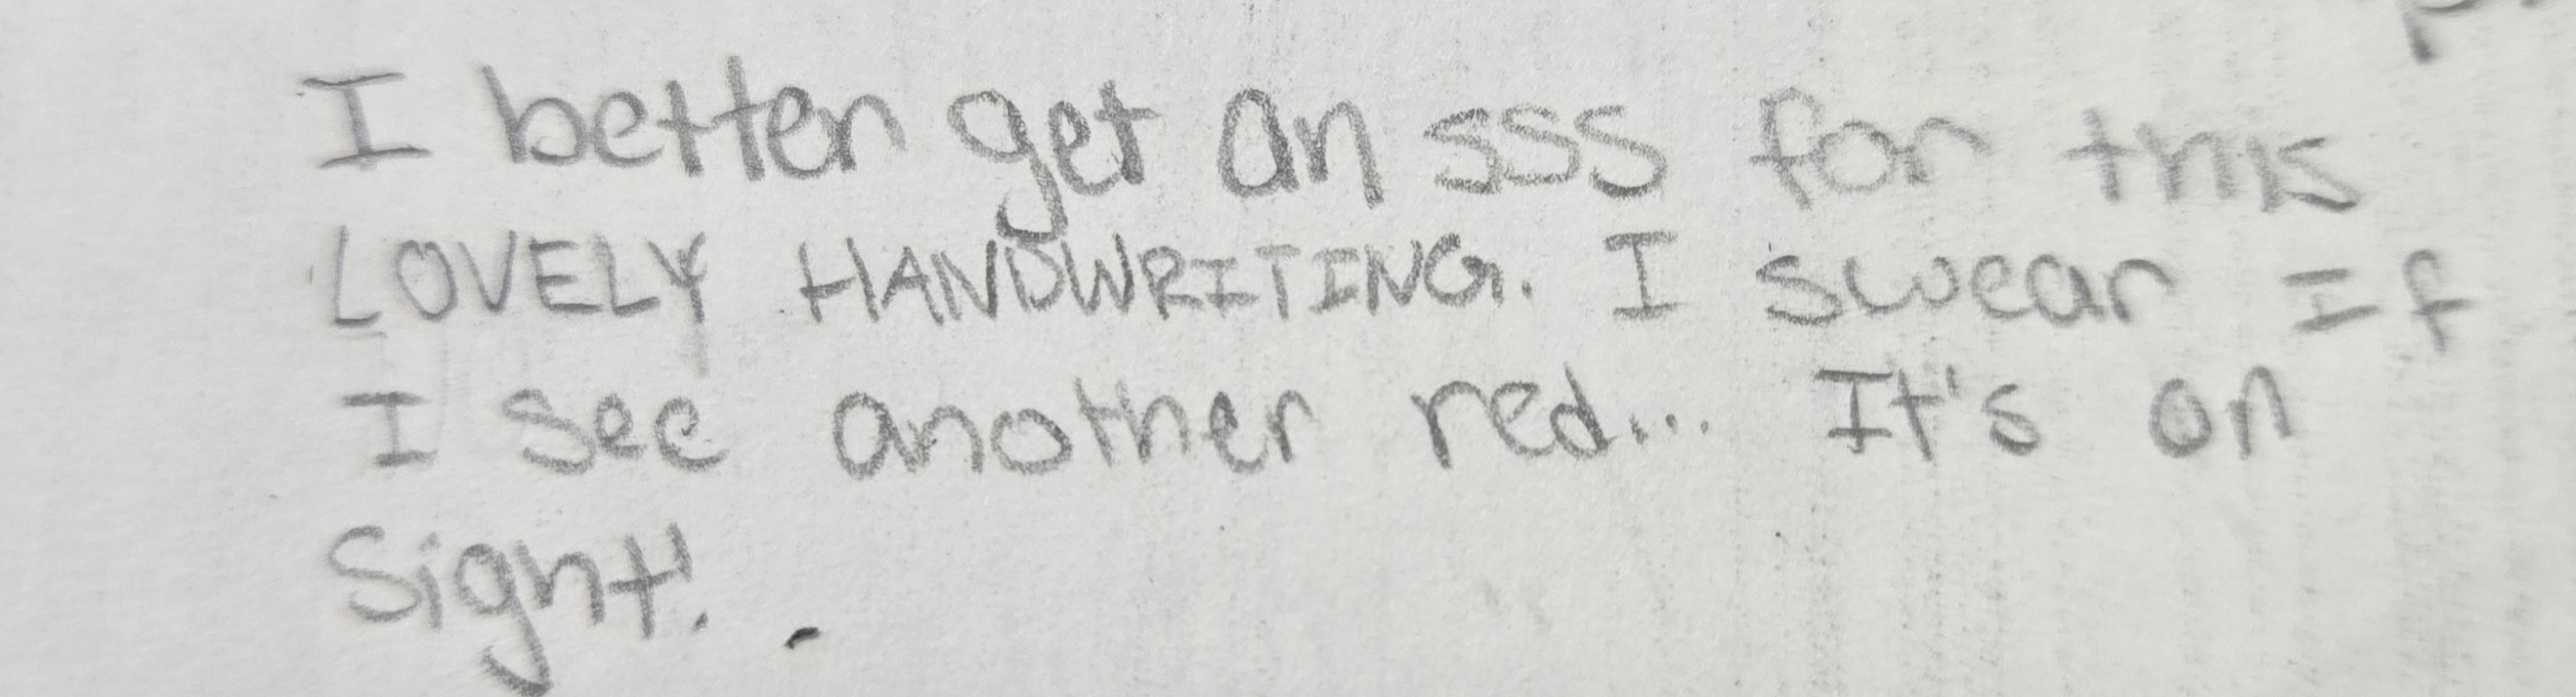 I better get an sss for this
LOVELY HANDWRITING. I swear If
I see another red... It's on
Sight!